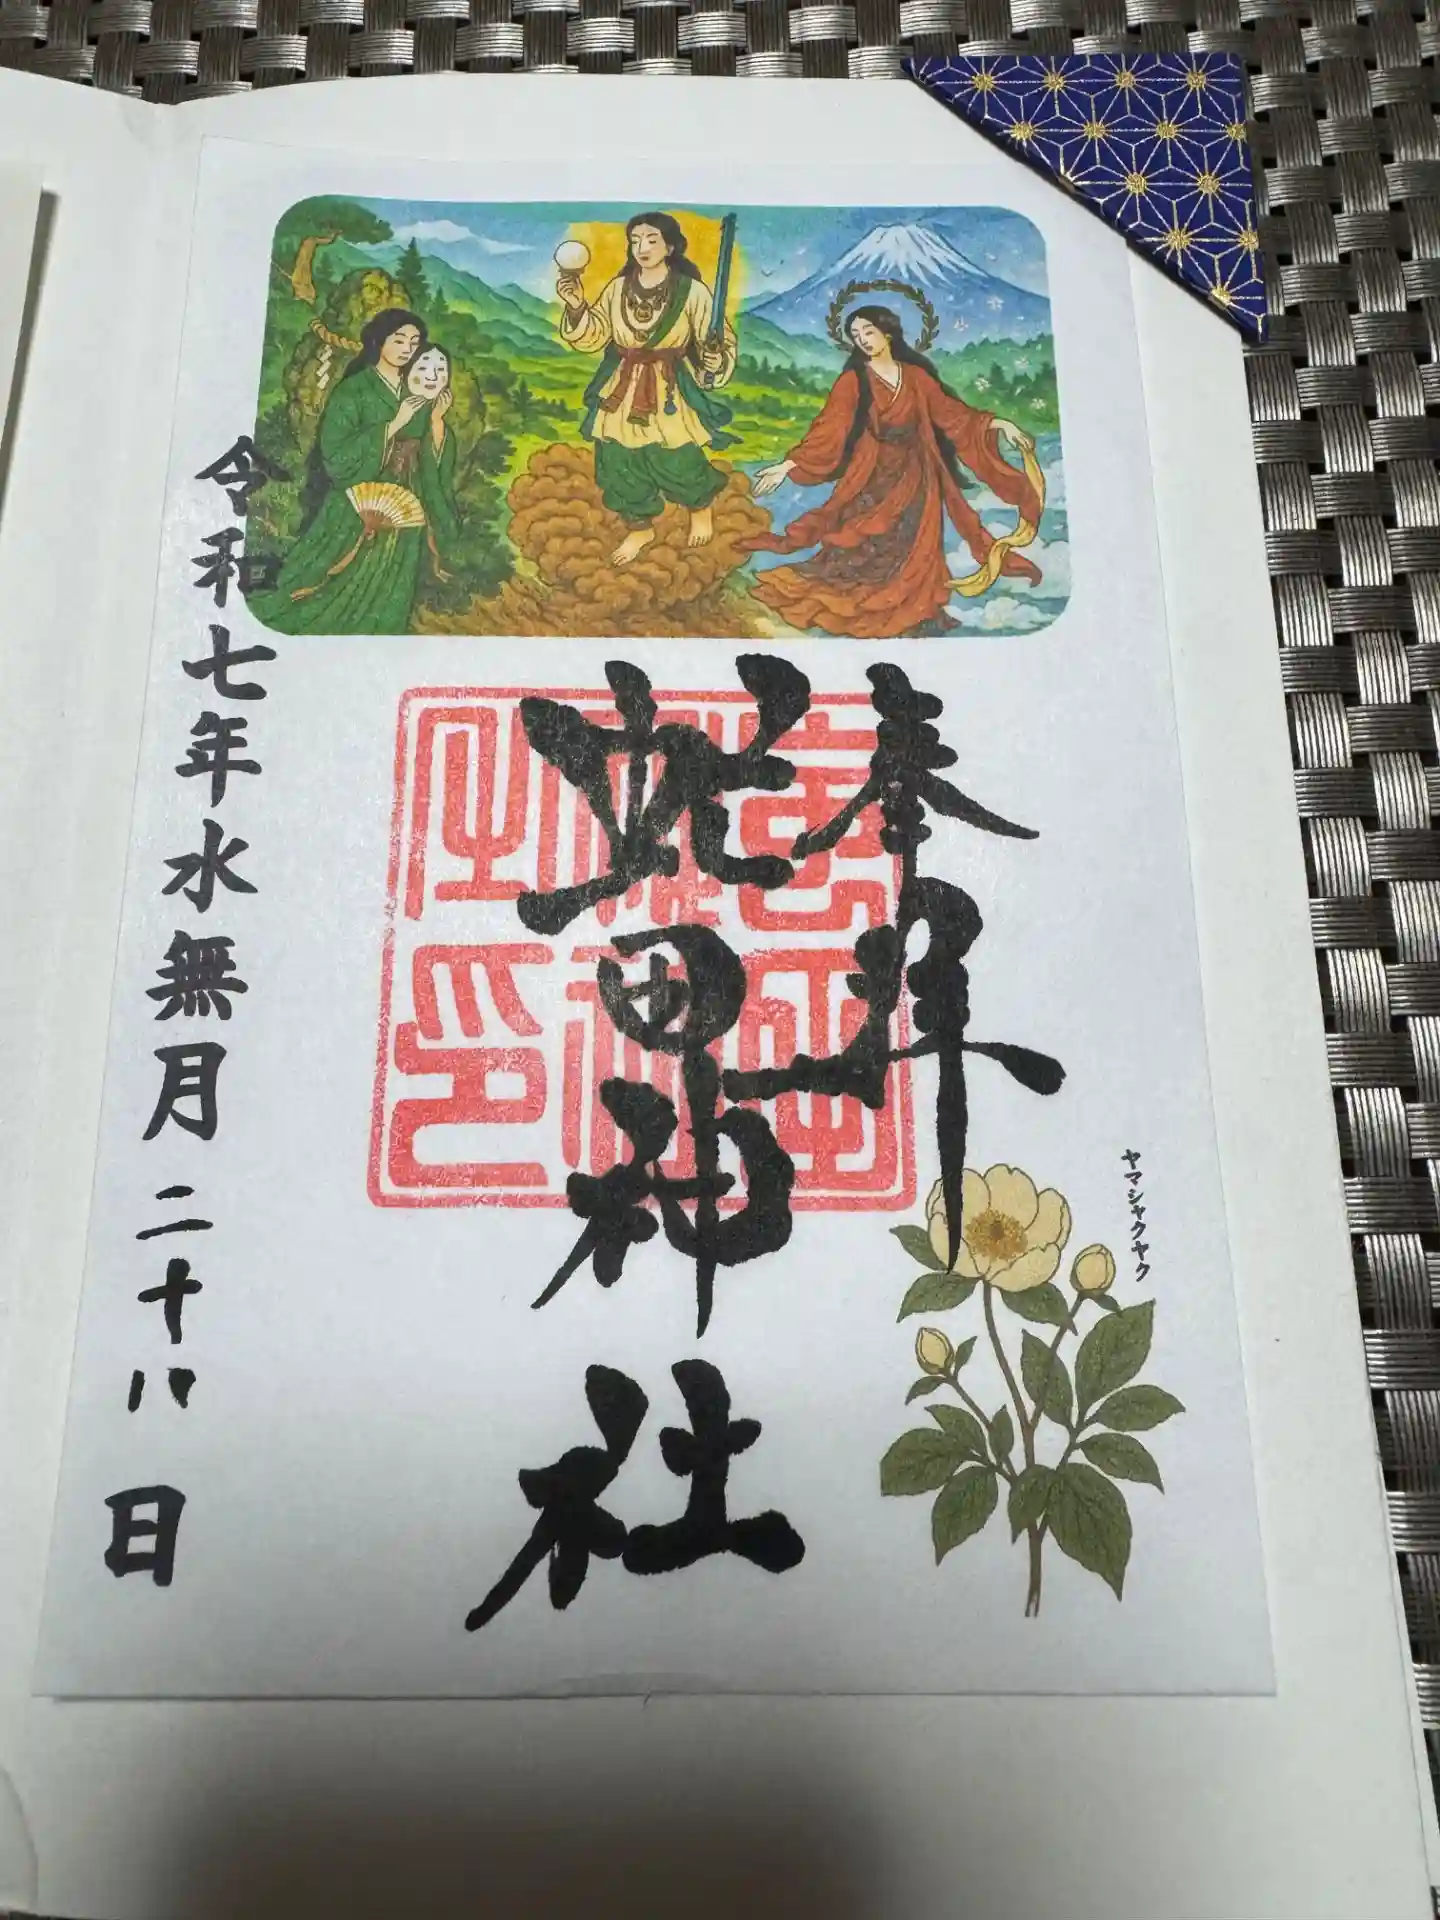 奉拝
蛇田神社
令和七年水無月二十八日
ヤマシャクヤク